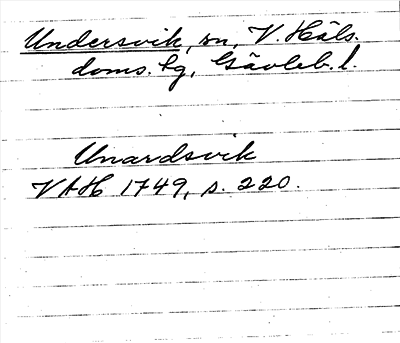 Undersvik, sn, V. Häls.
doms. sg, Gävleb. l.
Unardsvik
VAH 1749, s. 220.